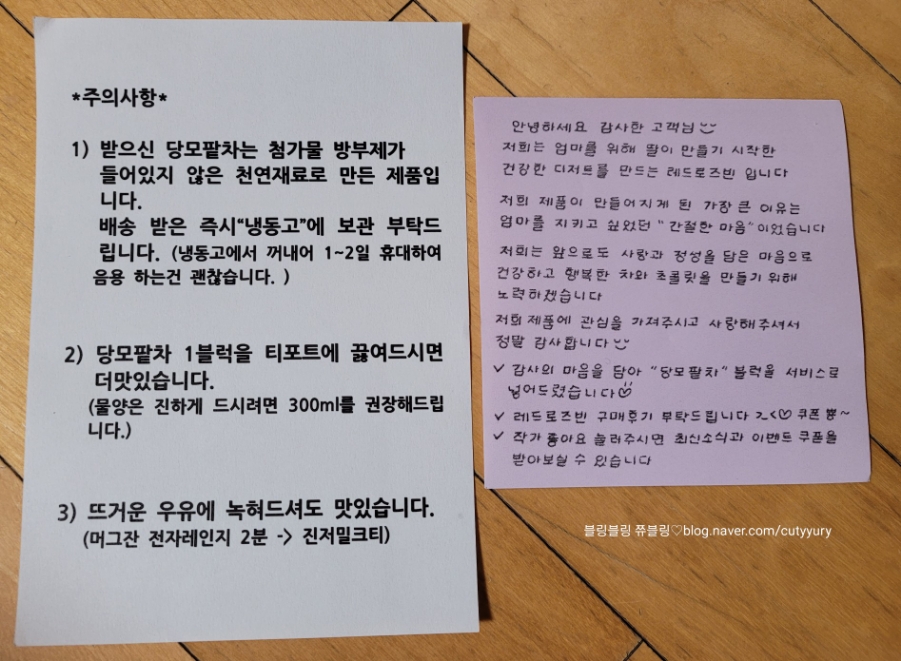 *주의사항*
1) 받으신 당모팥차는 첨가물 방부제가
들어있지 않은 천연재료로 만든 제품입
니다.
배송 받은 즉시“냉동고”에 보관 부탁드
립니다. (냉동고에서 꺼내어 1~2일 휴대하여
음용 하는건 괜찮습니다. )
2) 당모팥차 1블럭을 티포트에 끓여드시면
더맛있습니다.
(물양은 진하게 드시려면 300ml를 권장해드립
니다.)
3) 뜨거운 우유에 녹혀드셔도 맛있습니다.
(머그잔 전자레인지 2분 -> 진저밀크티)
안녕하세요 감사한 고객님
저희는 엄마를 위해 딸이 만들기 시작한
건강한 디저트를 만드는 레드로즈빈 입니다
저희 제품이 만들어지게 된 가장 큰 이유는
엄마를 지키고 싶었던 "간절한 마음"이었습니다
저희는 앞으로도 사랑과 정성을 담은 마음으로
건강하고 행복한 차와 초콜릿을 만들기 위해
노력하겠습니다
저희 제품에 관심을 가져주시고 사랑해주셔서
정말 감사합니다
✓ 감사의 마음을 담아 "당모팥차" 블럭을 서비스로
넣어드렸습니다♡
✓ 레드로즈빈 구매후기 부탁드립니다 >.<♡ 쿠폰 뿅~
✓ 작가 좋아요 눌러주시면 최신소식과 이벤트 쿠폰을
받아보실 수 있습니다
블링블링 쮸블링♡blog.naver.com/cutyyury